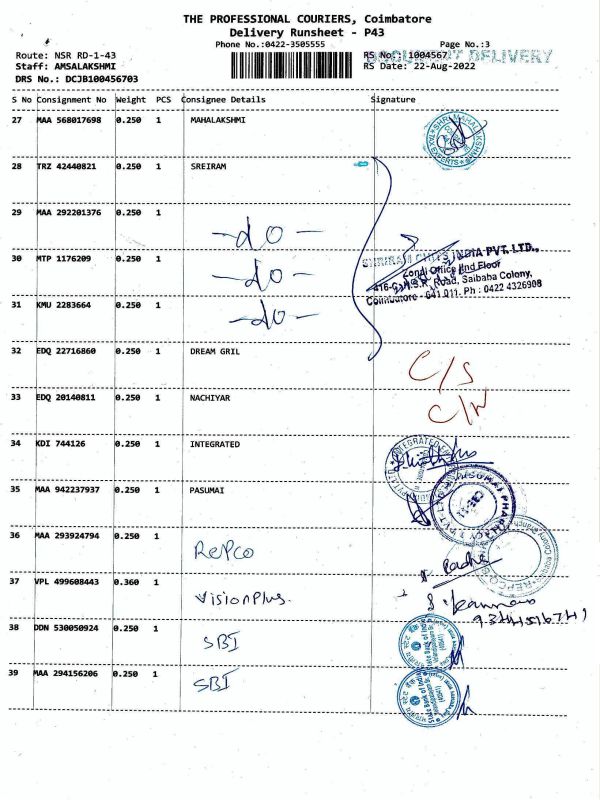 THE PROFESSIONAL COURIERS, Coimbatore
Delivery Runsheet - P43
Phone No.:0422-3505555 Page No.:3
Route: NSR RD-1-43 RS No.: 1004567
DOCUMENT DELIVERY
Staff: AMSALAKSHMI RS Date: 22-Aug-2022
DRS No.: DCJB100456703
S No Consignment No Weight PCS Consignee Details Signature
27 MAA 568017698 0.250 1 MAHALAKSHMI
28 TRZ 42440821 0.250 1 SREIRAM
29 MAA 292201376 0.250 1
-do-
30 MTP 1176209 0.250 1
-do-
SHRIRAM CHITS INDIA PVT. LTD.,
Zonal Office IInd Floor
416-G, N.S.R. Road, Saibaba Colony,
Coimbatore - 641 011. Ph : 0422 4326908
31 KMU 2283664 0.250 1
-do-
32 EDQ 22716860 0.250 1 DREAM GRIL
C/S
33 EDQ 20140811 0.250 1 NACHIYAR
C/N
34 KDI 744126 0.250 1 INTEGRATED
35 MAA 942237937 0.250 1 PASUMAI
36 MAA 293924794 0.250 1
Repco
Radha
37 VPL 499608443 0.360 1
VisionPlus.
38 DDN 530050924 0.250 1
SBI
39 MAA 294156206 0.250 1
SBI